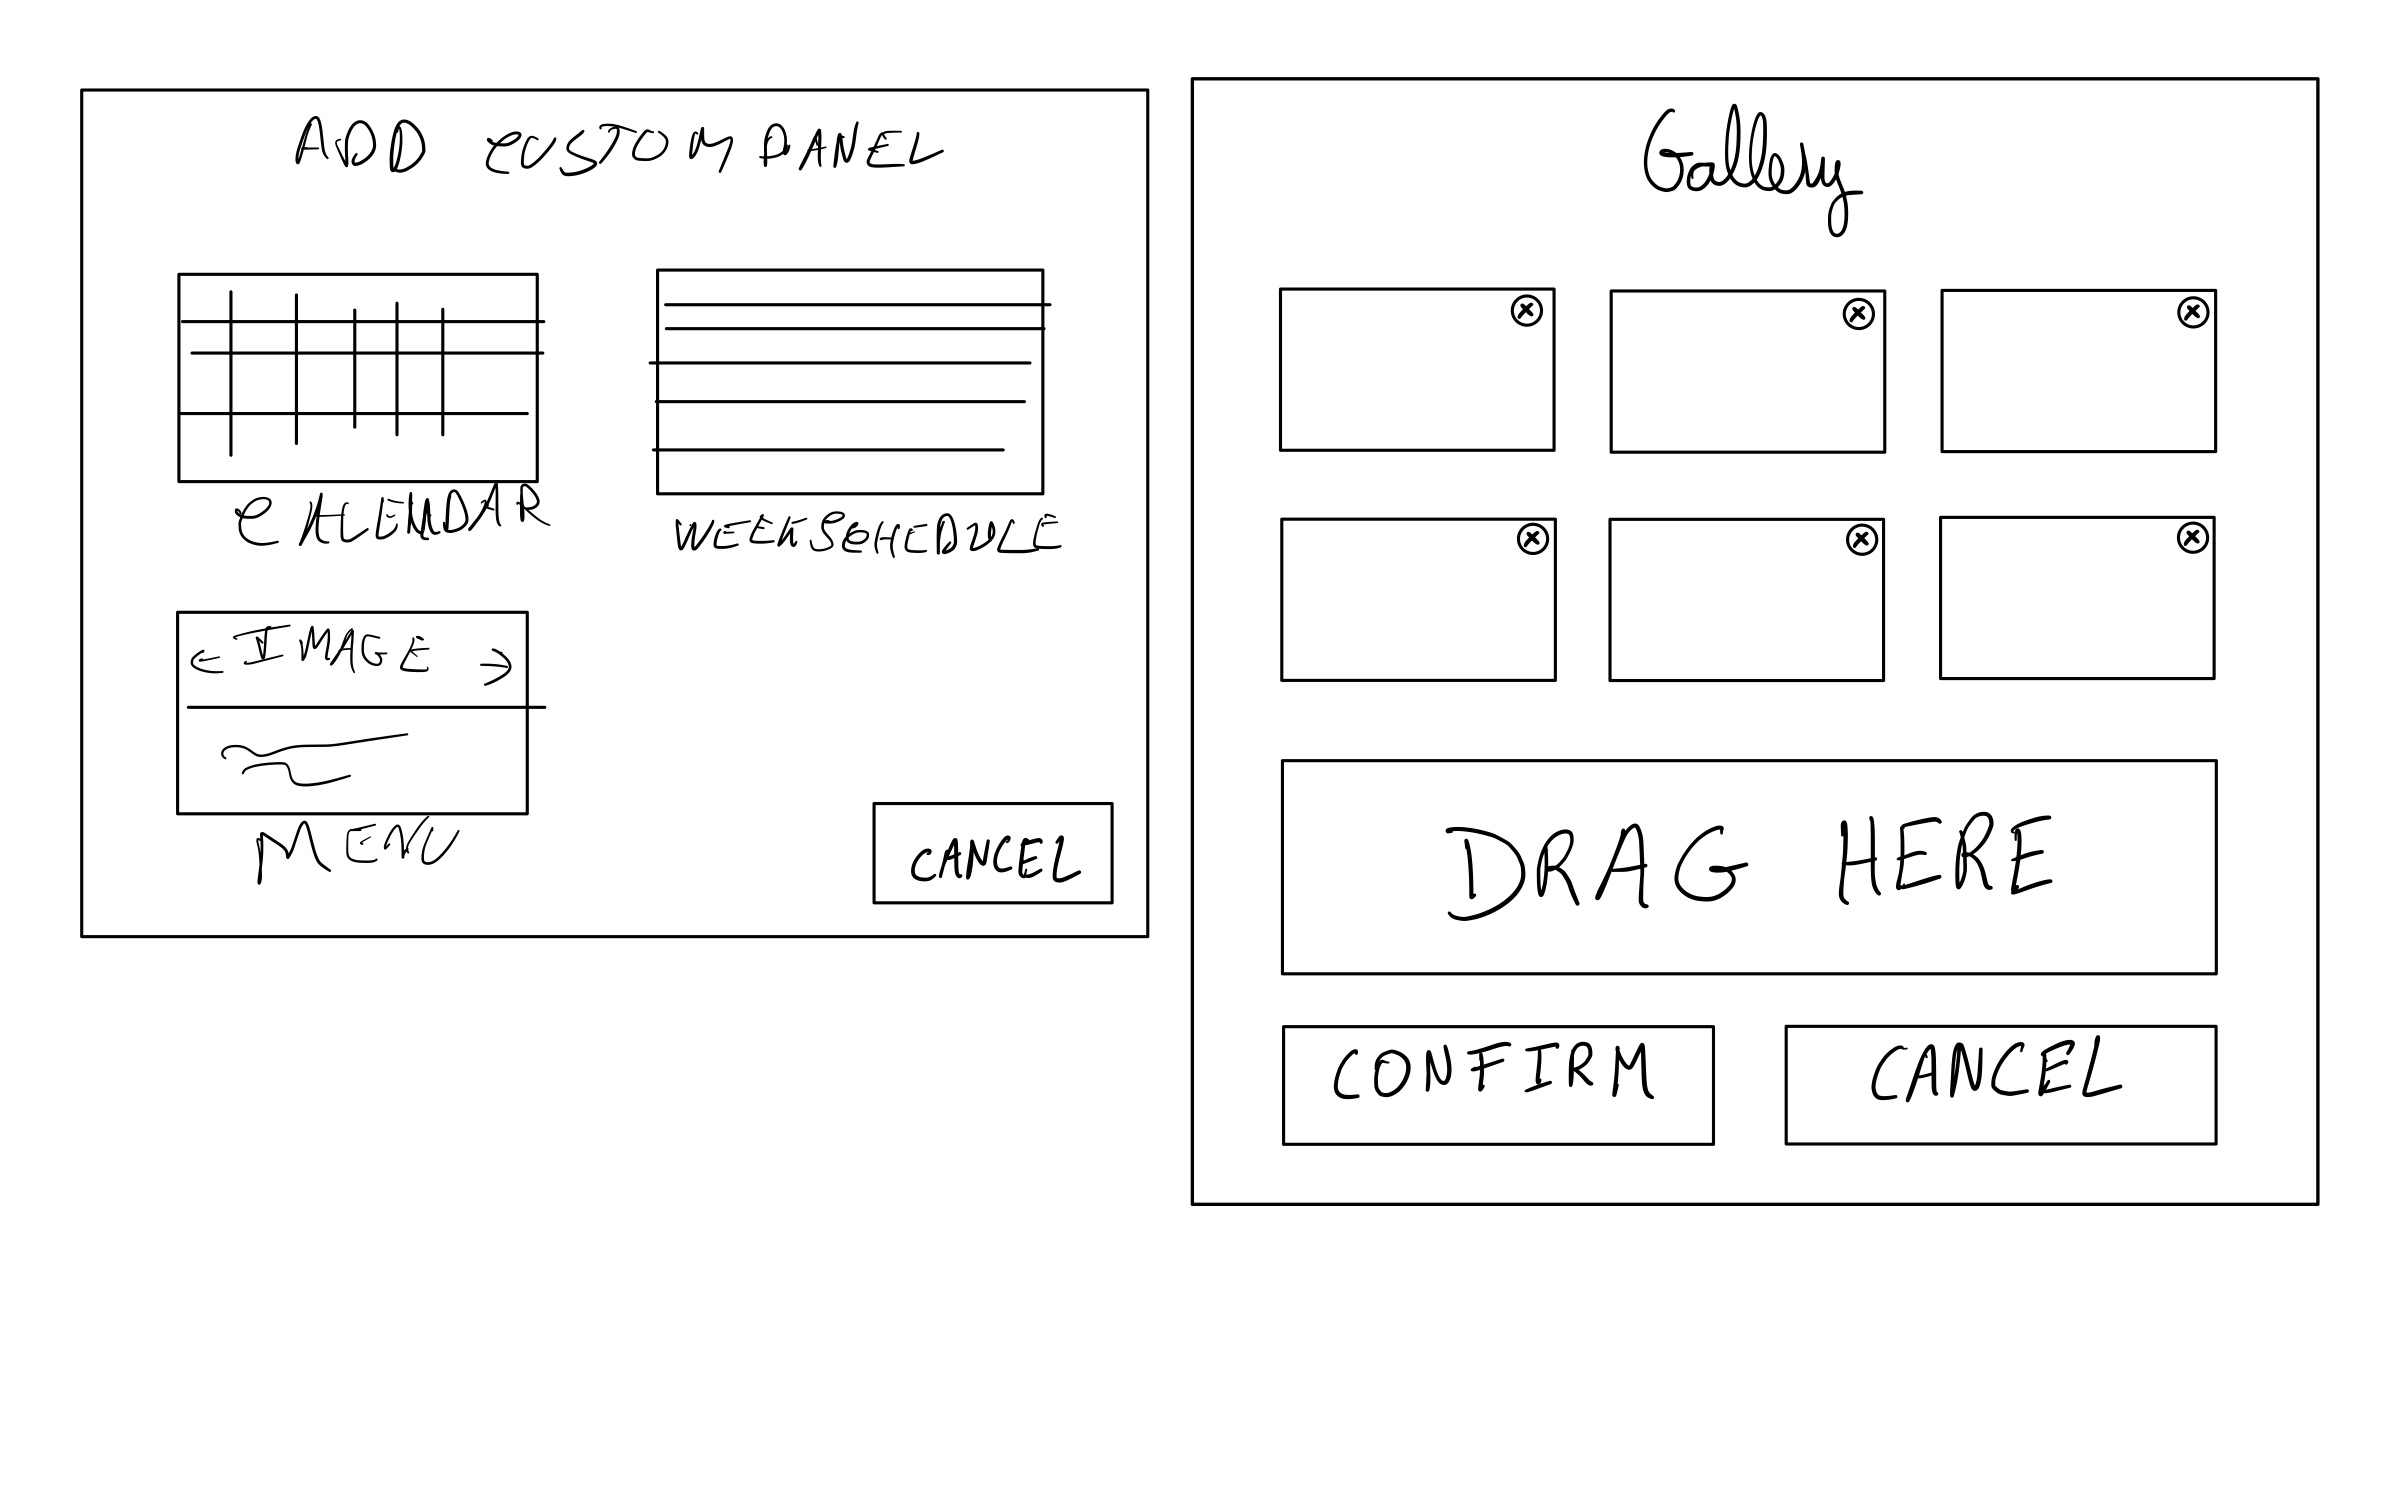 ADD CUSTOM PANEL
CALENDAR
WEEKSCHEDULE
IMAGE
MENU
CANCEL
Gallery
DRAG HERE
CONFIRM
CANCEL